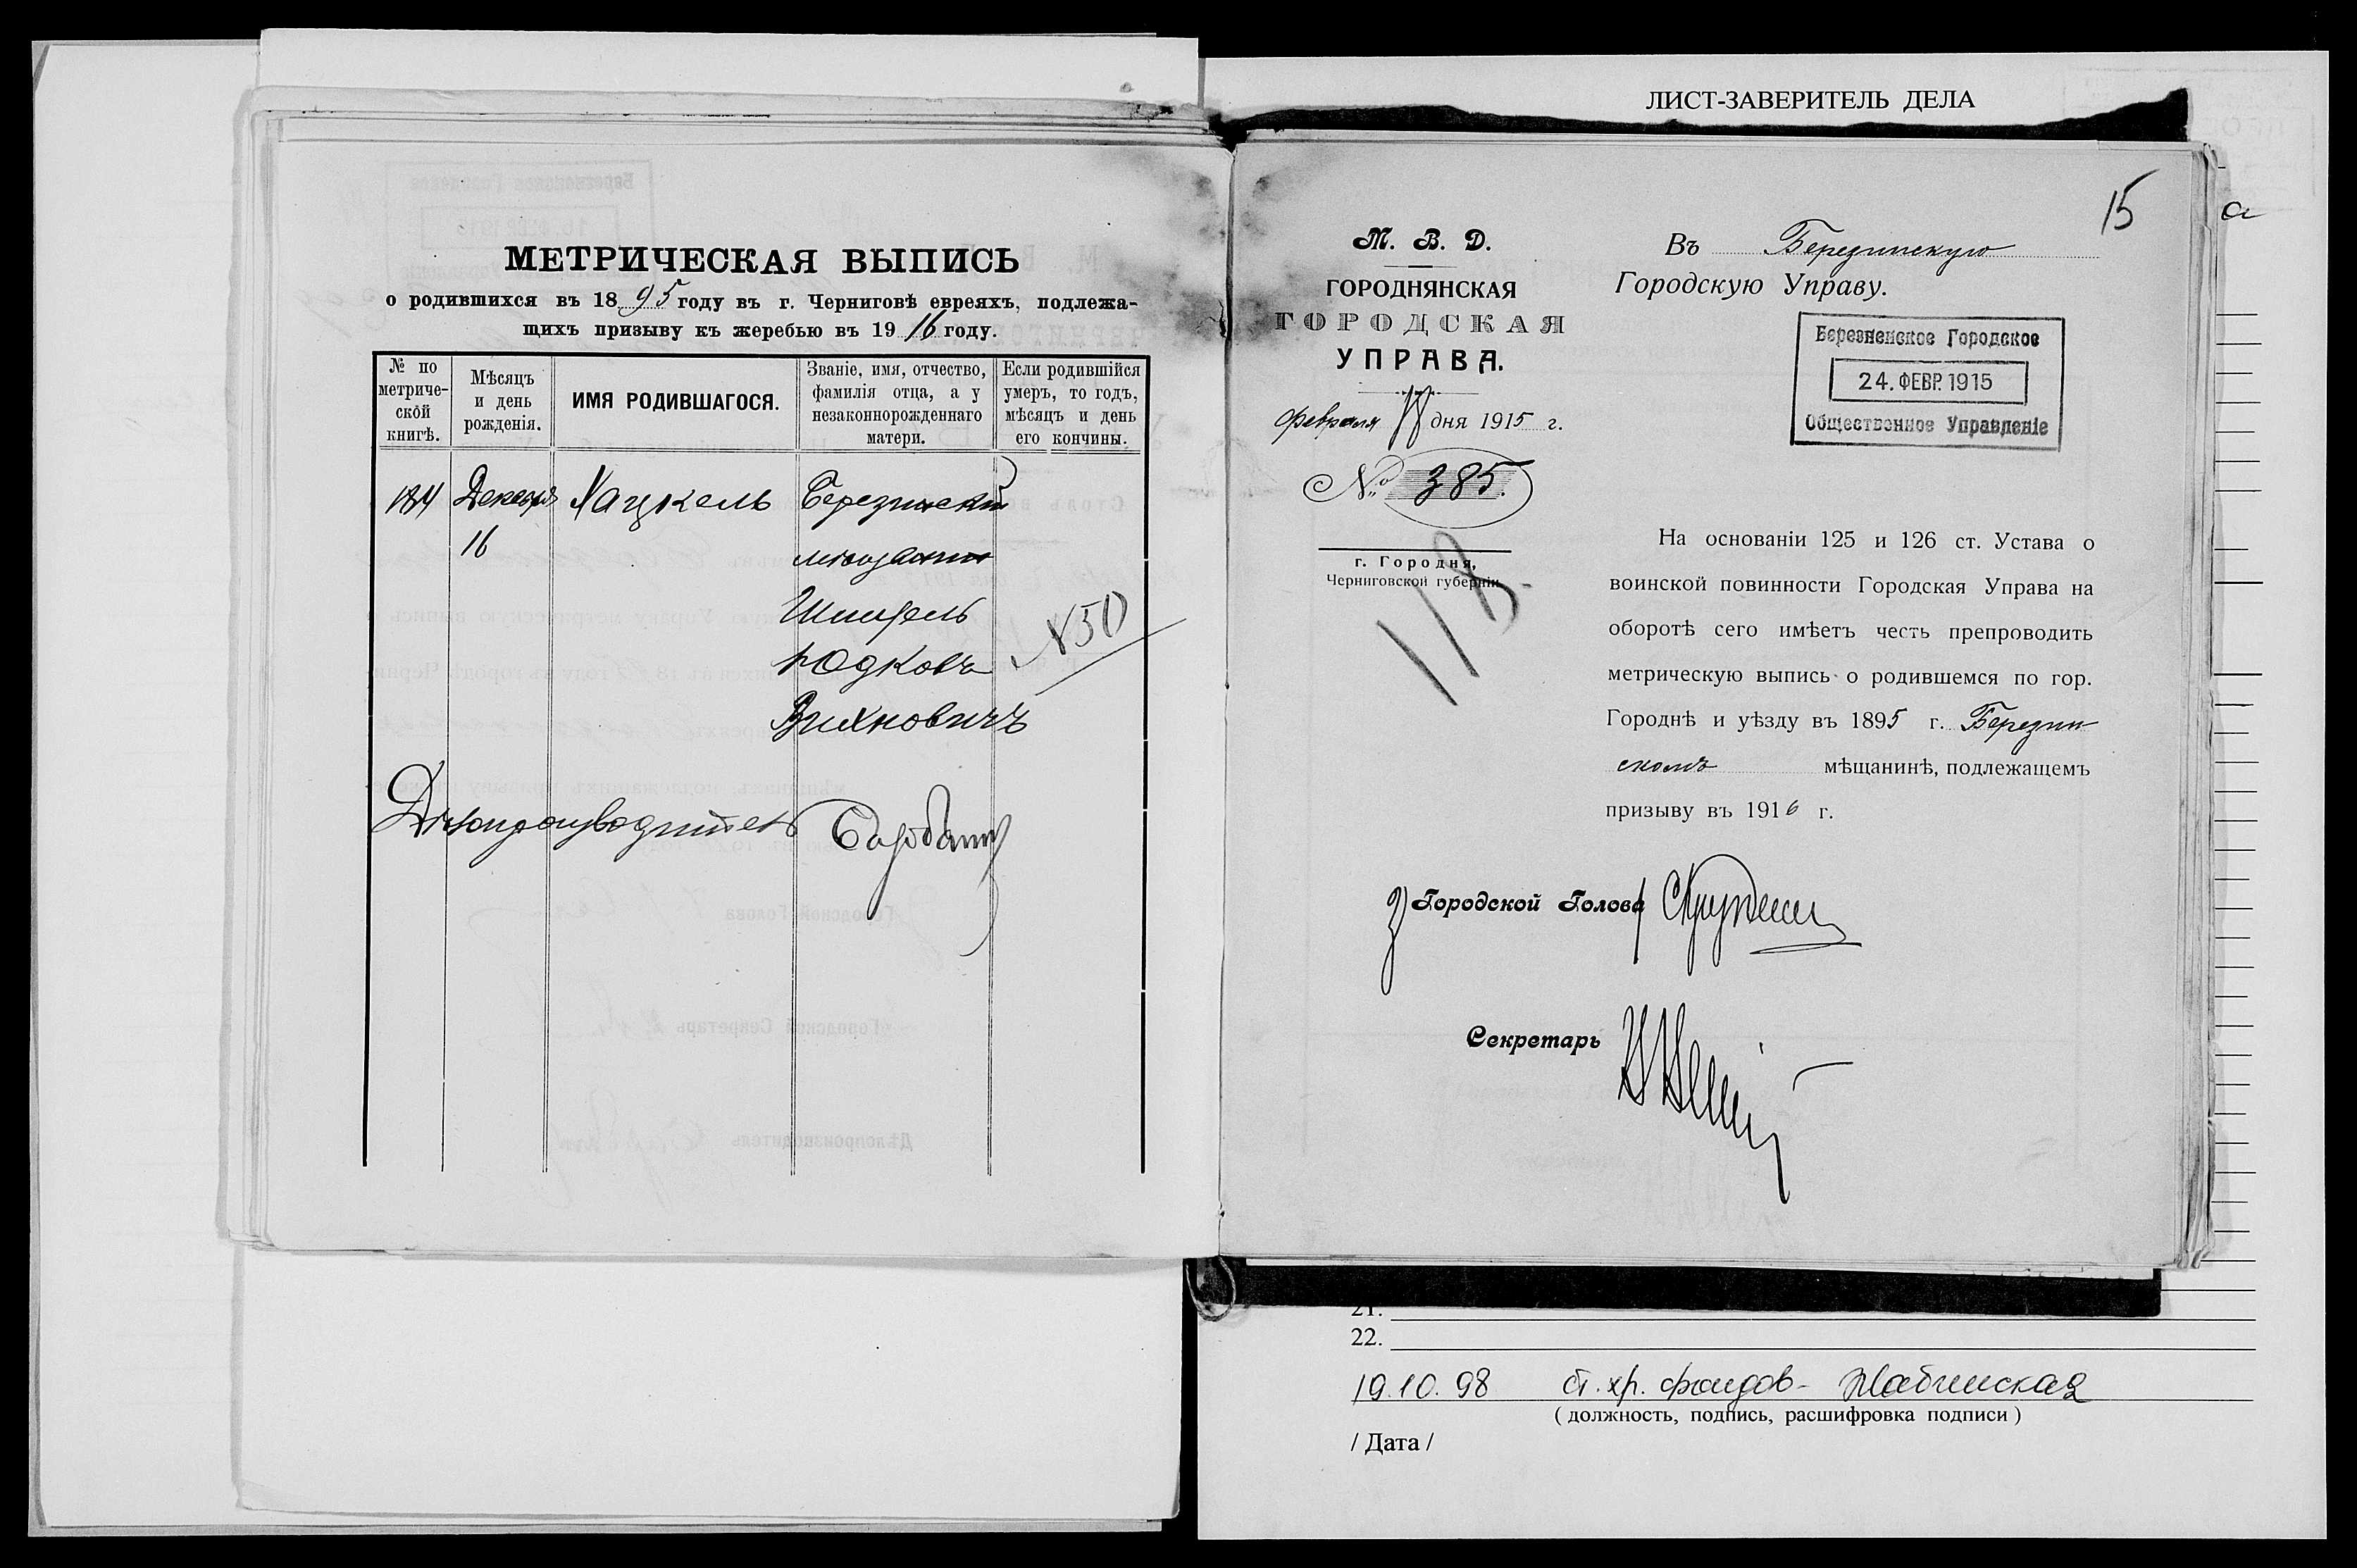 МЕТРИЧЕСКАЯ ВЫПИСЬ
о родившихся въ 1895 году въ г. Черниговѣ евреяхъ, подлежа-
щихъ призыву къ жеребью въ 1916 году.
№ по метриче-ской книгѣ.
Мѣсяцъ и день рожденія.
ИМЯ РОДИВШАГОСЯ.
Званіе, имя, отчество, фамилія отца, а у незаконнорожденнаго матери.
Если родившійся умеръ, то годъ, мѣсяцъ и день его кончины.
184 Декабря Хацкель Березинскій
16 мѣщанинъ
Шмифель
Юдковъ
Вихновичъ
№50
Дѣлопроизводитель
ЛИСТ-ЗАВЕРИТЕЛЬ ДЕЛА
15
М. В. Д.
ГОРОДНЯНСКАЯ
ГОРОДСКАЯ
УПРАВА.
февраля дня 1915 г.
№ 385.
г. Городня,
Черниговской губерніи.
118.
Въ Березинскую
Городскую Управу.
Березненское Городское
24. ФЕВР. 1915
Общественное Управленіе
На основаніи 125 и 126 ст. Устава о
воинской повинности Городская Управа на
оборотѣ сего имѣетъ честь препроводить
метрическую выпись о родившемся по гор.
Городнѣ и уѣзду въ 1895 г. Березин
скомъ мѣщанинѣ, подлежащемъ
призыву въ 1916 г.
Городской Голова
Секретарь
21.
22.
19.10.98 ст. хр. фондов-
( должность, подпись, расшифровка подписи )
/ Дата /